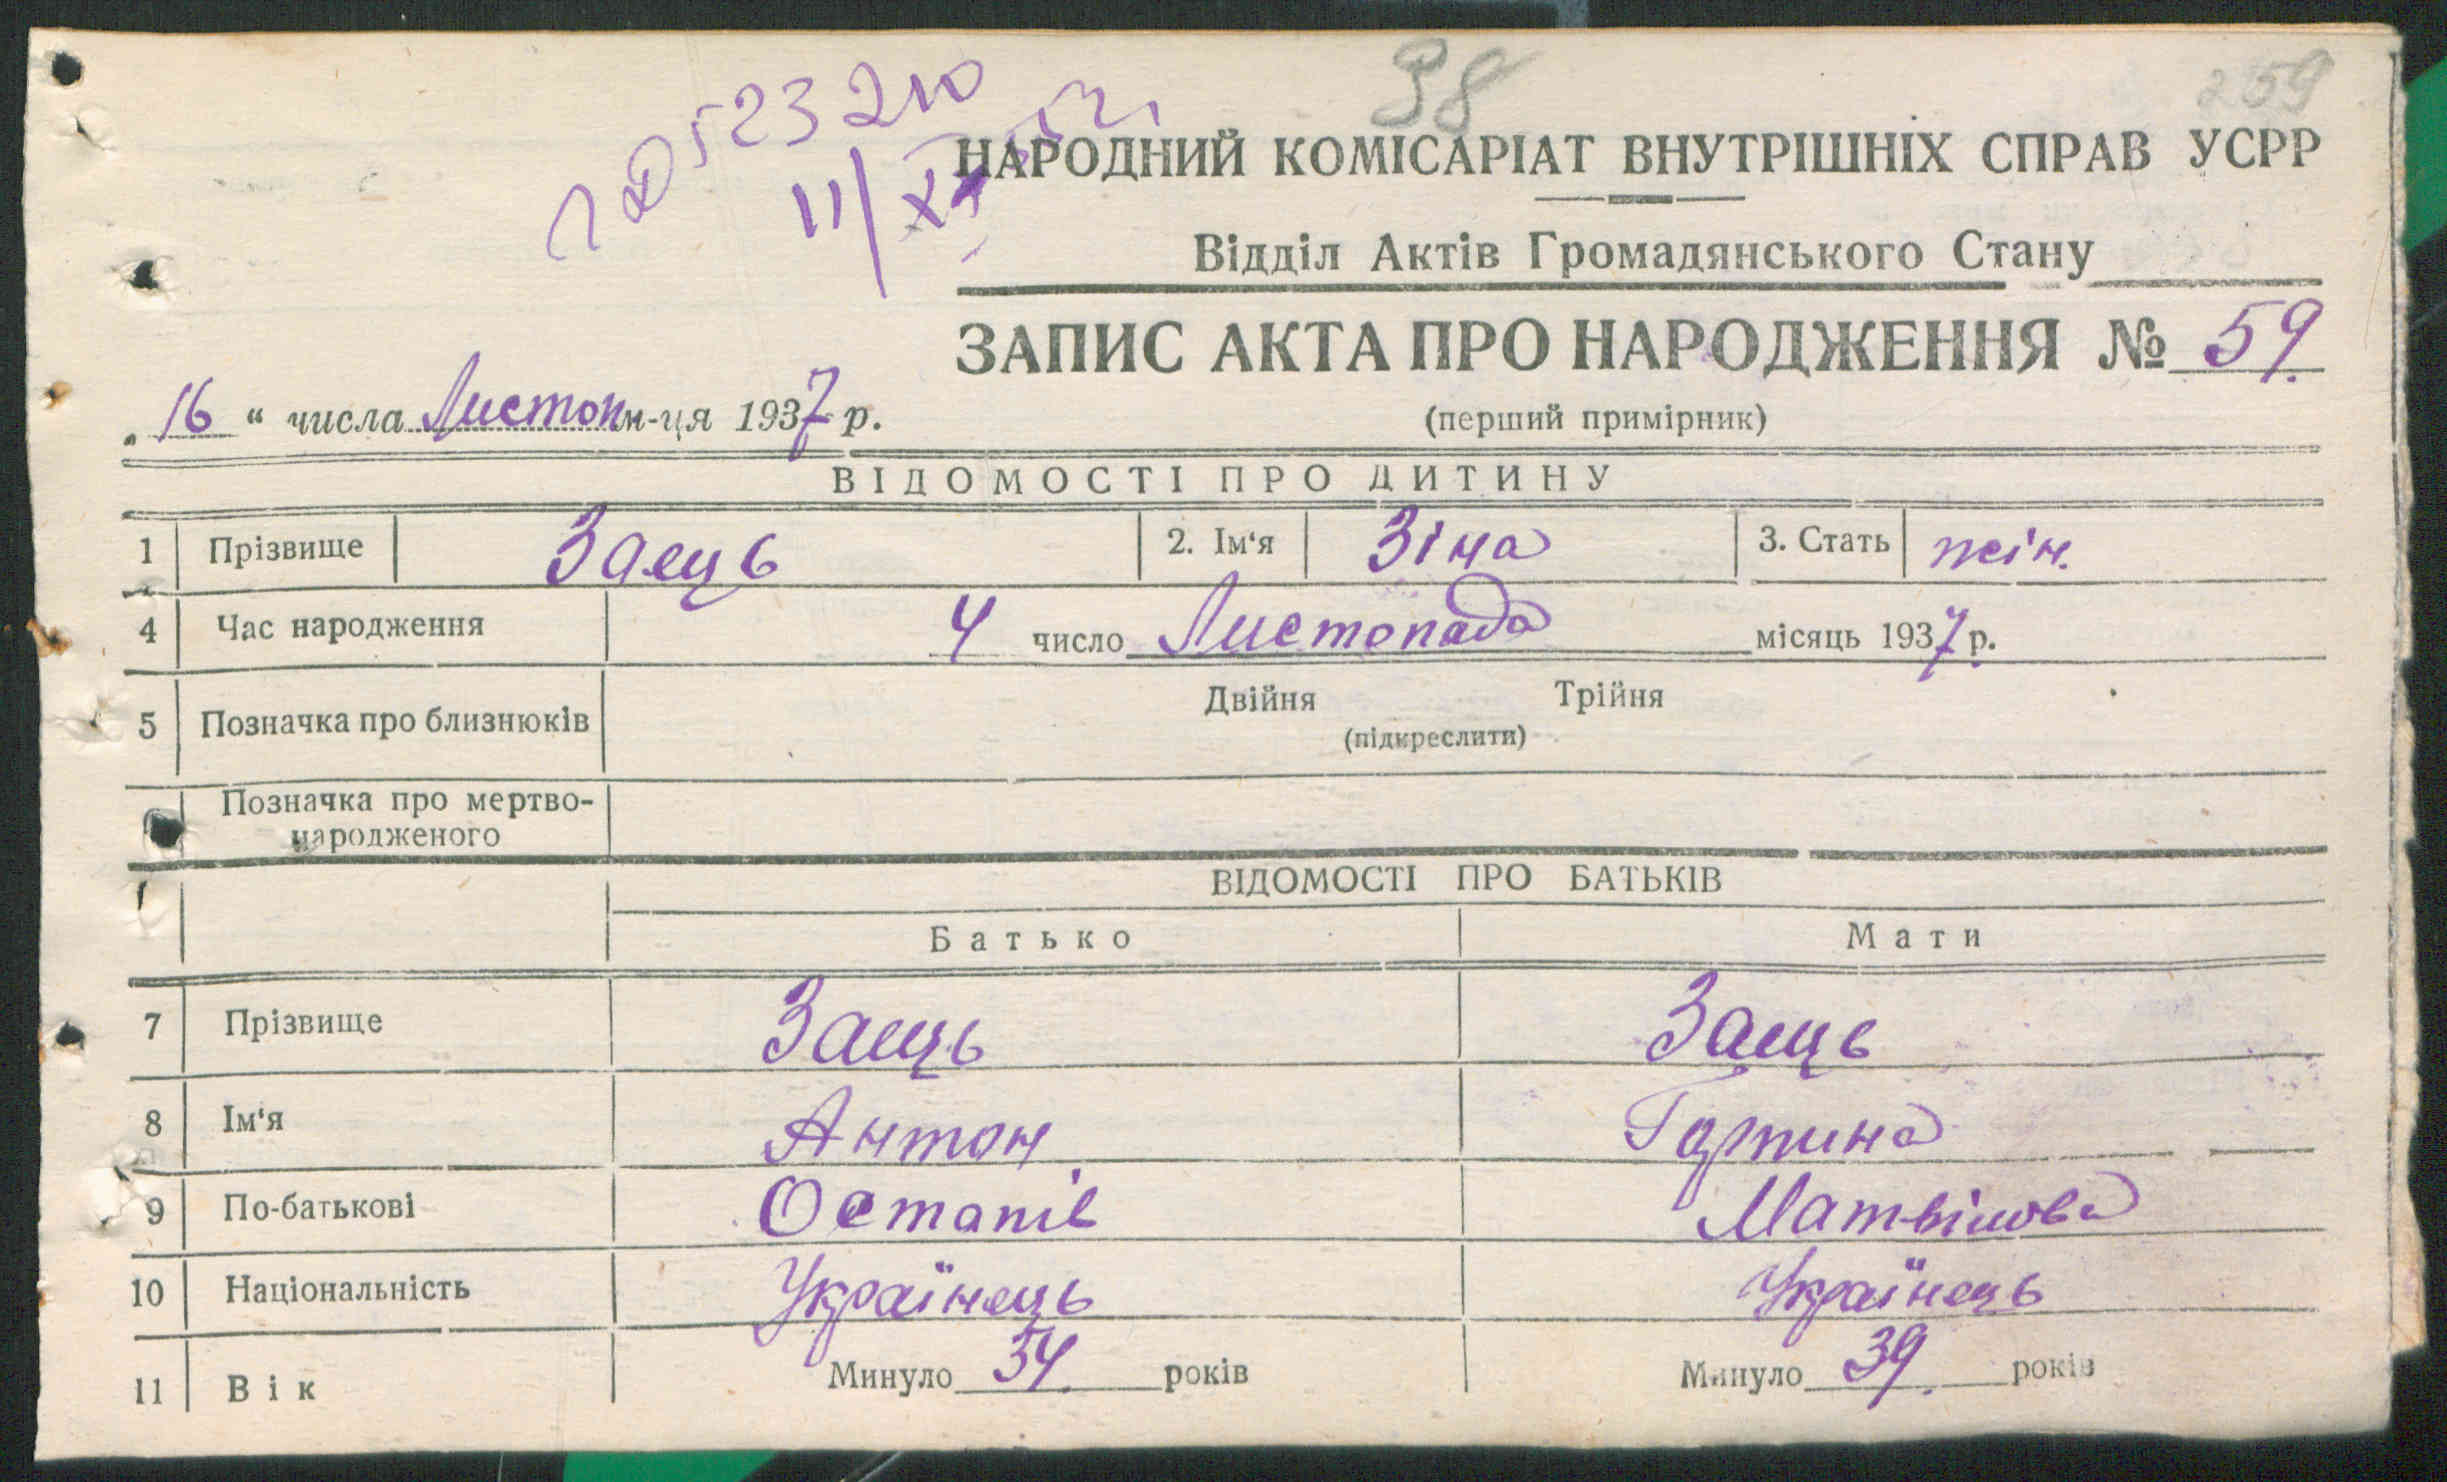 98
259
523210
11/XI 52
НАРОДНИЙ КОМІСАРІАТ ВНУТРІШНІХ СПРАВ УСРР
Відділ Актів Громадянського Стану
ЗАПИС АКТА ПРО НАРОДЖЕННЯ № 59.
„16“ числа Листоп м-ця 1937 р.
(перший примірник)
ВІДОМОСТІ ПРО ДИТИНУ
1 Прізвище Заєць 2. Ім‘я Зіна 3. Стать жін.
4 Час народження 4 число Листопада місяць 1937 р.
5 Позначка про близнюків Двійня Трійня
(підкреслити)
Позначка про мертво-
народженого
ВІДОМОСТІ ПРО БАТЬКІВ
Батько Мати
7 Прізвище Заєць Заєць
8 Ім‘я Антон Горпина
9 По-батькові Остапів Матвіїова
10 Національність Українець Українець
11 Вік Минуло 34 років Минуло 39. років